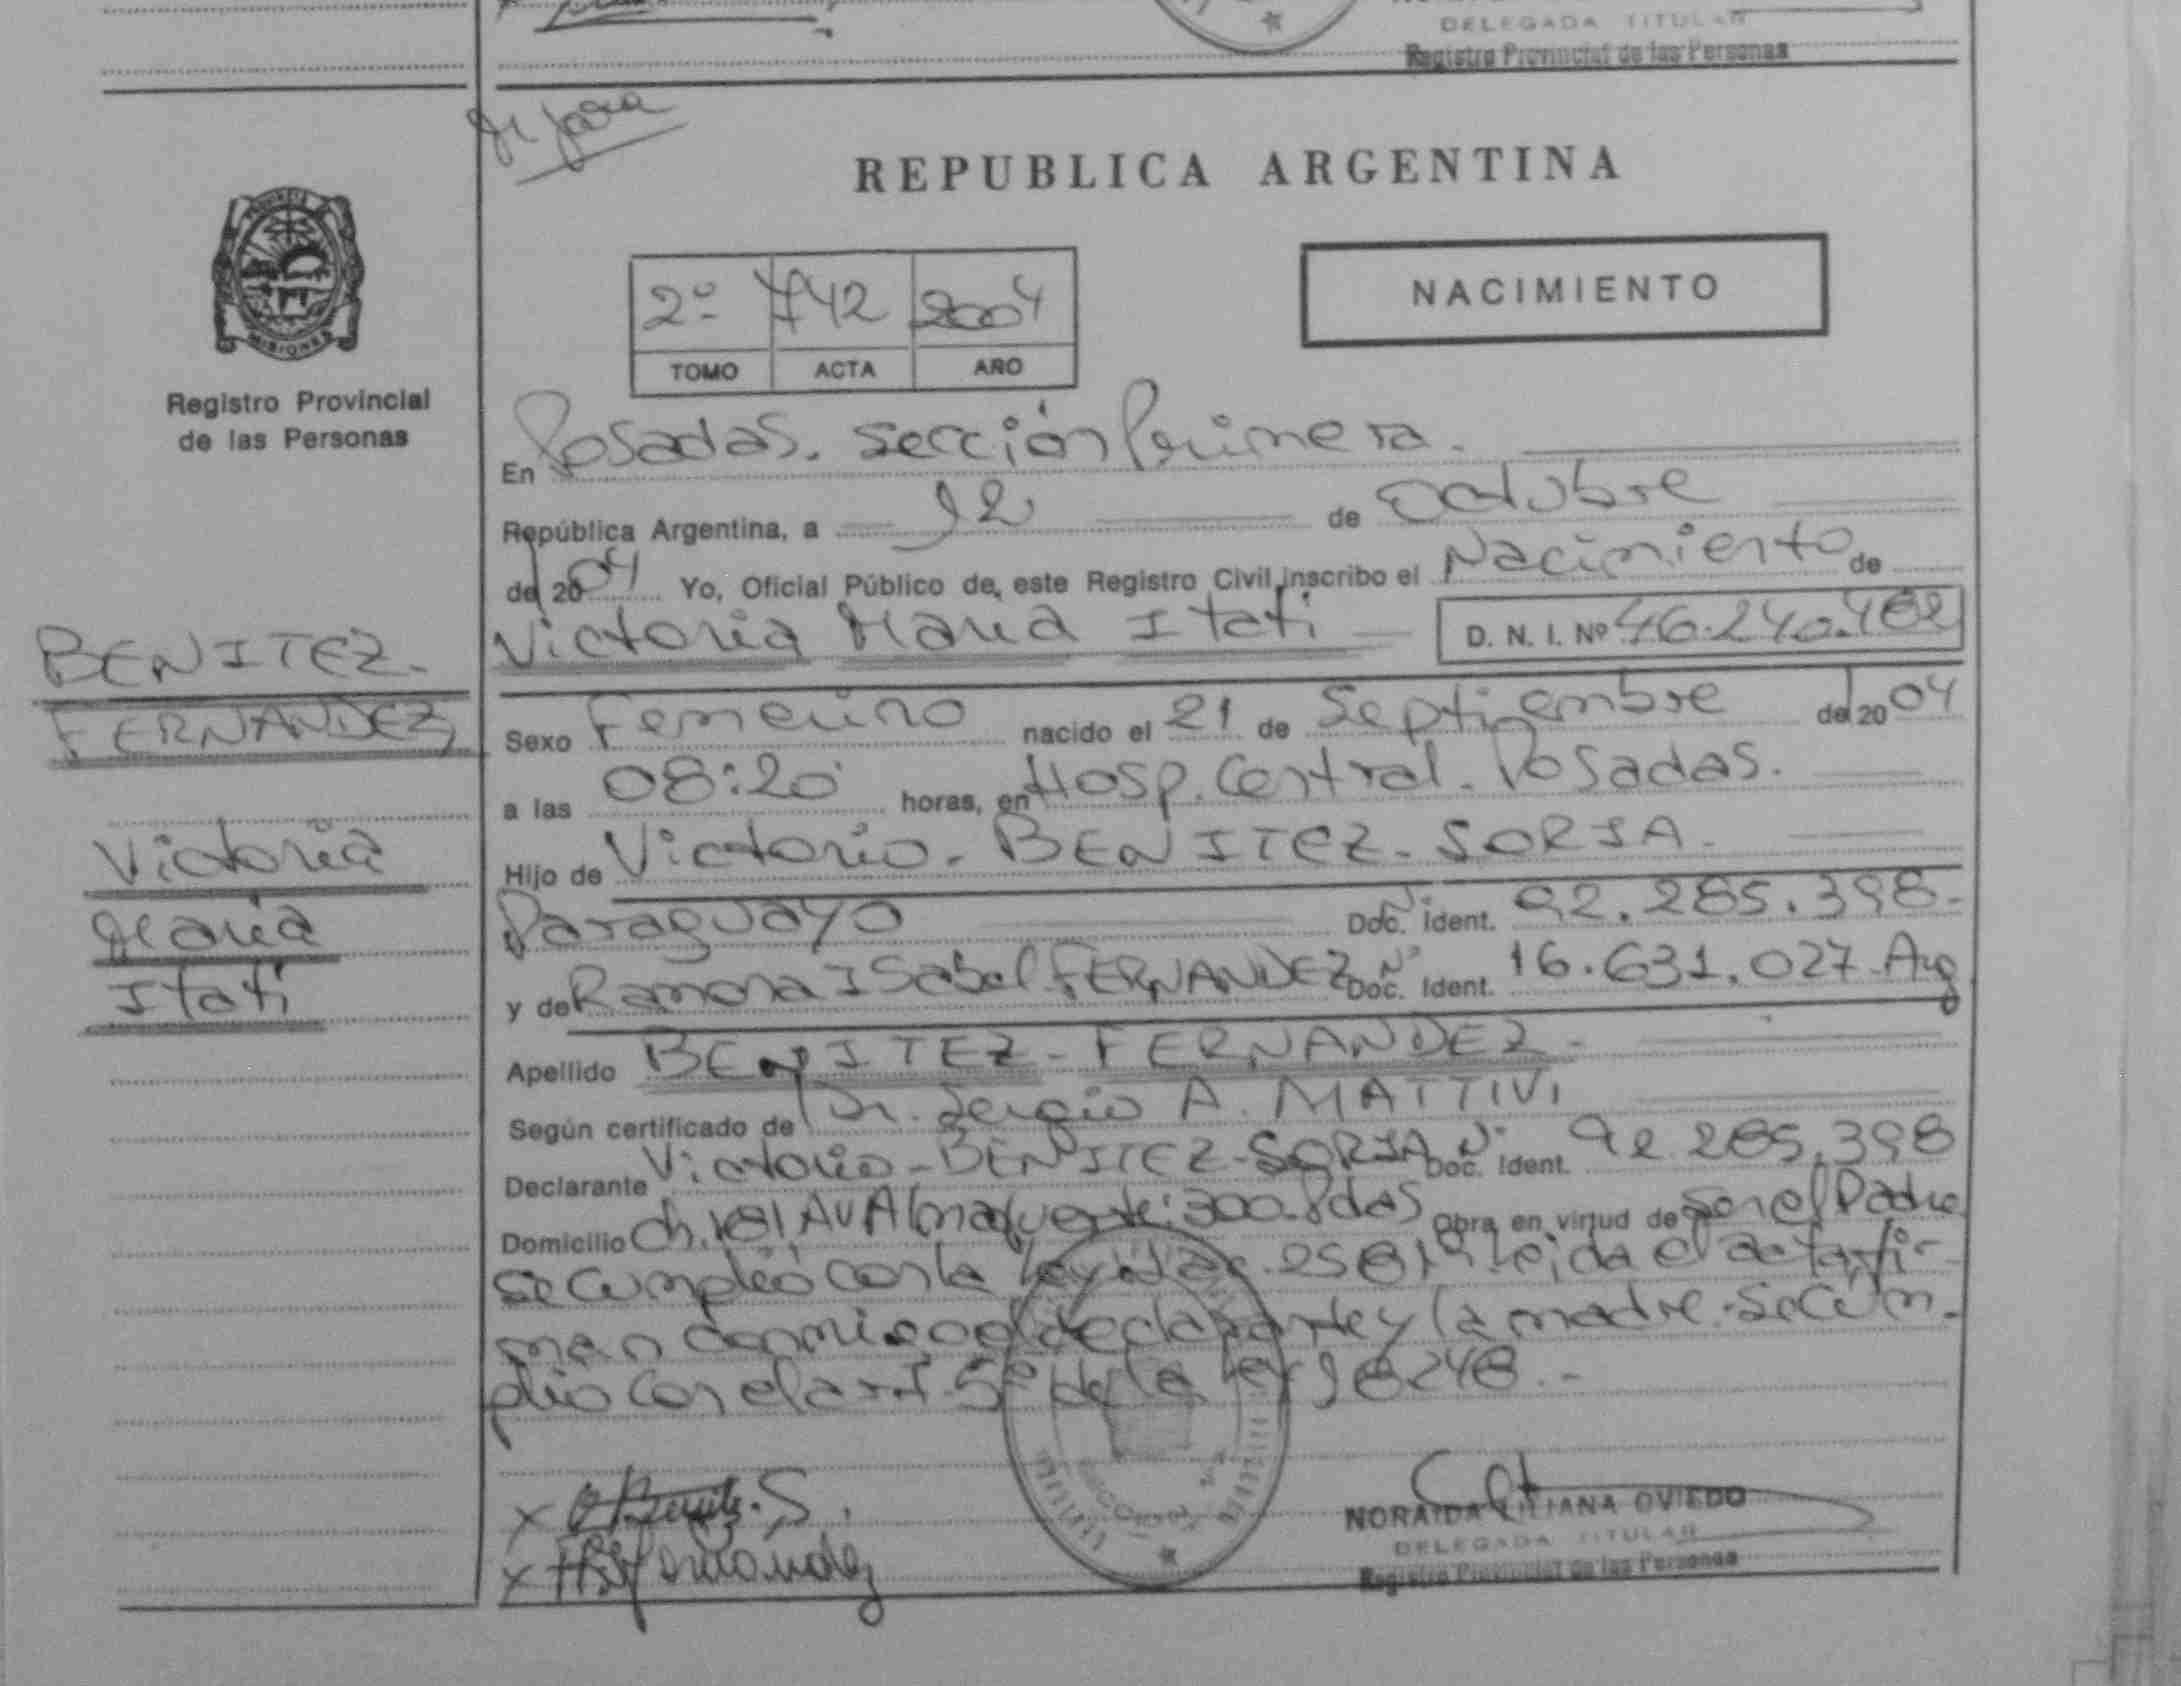 DELEGADA TITULAR
Registro Provincial de las Personas
REPUBLICA ARGENTINA
MISIONES
Registro Provincial
de las Personas
2º 742 2004
TOMO ACTA AÑO
NACIMIENTO
En Posadas. Sección Primera.
República Argentina, a 12 de Octubre
del 2004 Yo, Oficial Público de este Registro Civil inscribo el Nacimiento de
Victoria Maria Itati D. N. I. Nº 46.240.482
BENITEZ-
FERNANDEZ
Victoria
Maria
Itati
Sexo Femenino nacido el 21 de Septiembre del 2004
a las 08:20 horas, en Hosp. Central. Posadas.
Hijo de Victorio. BENITEZ-SORIA.
Paraguayo Doc. Nº Ident. 92.285.398-
y de Ramona Isabel FERNANDEZ Doc. Nº Ident. 16.631.027-Arg
Apellido BENITEZ-FERNANDEZ-
Según certificado de Dr. Sergio A. MATTIVI
Declarante Victorio-BENITEZ-SORIA Doc. Nº Ident. 92.285.398
Domicilio Ch. 181 AV Almafuerte: 300. Pdas Obra en virtud de Ser el Padre
se cumplió con la Ley Leida el acta, fir-
man conmigo el declarante y la madre. Se cum-
plio con el art. 5º de la Ley 18248.-
NORAIDA LILIANA OVIEDO
DELEGADA TITULAR
Registro Provincial de las Personas